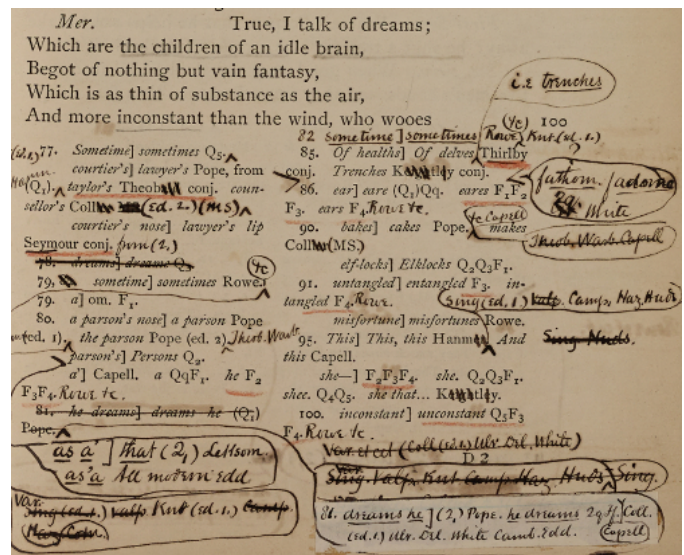 Mer. True, I talk of dreams;
Which are the children of an idle brain,
Begot of nothing but vain fantasy,
Which is as thin of substance as the air,
And more inconstant than the wind, who wooes
100
i.e trenches
77. Sometime] sometimes Q5.
courtier's] lawyer's Pope, from
(Q1). taylor's Theob conj. coun-
sellor's Coll (Ed. 2.) (MS)
courtier's nose] lawyer's lip
Seymour conj.
78. dreams] dreame Q
79. sometime] sometimes Rowe. &c
79. a] om. F1.
80. a parson's nose] a parson Pope
(ed. 1), the parson Pope (ed. 2) Theob. Warb.
parson's] Persons Q2.
a'] Capell. a QqF1. he F2
F3F4. Rowe &c.
81. he dreams] dreams he (Q1)
Pope.
as a'] that (2,) Lettsom
as 'a All modern edd
Var.
Sing (ed. 1.) Valp. Knt (ed. 1.) Camp.
Haz. Corn.
82 sometime] sometimes Rowe &c Knt. (ed. 1.)
85. Of healths] Of delves Thirlby
conj. Trenches Keightley conj.
86. ear] eare (Q1)Qq. eares F1F2
F3. ears F4. Rowe &c.
fathom. fadome
2q. White
90. bakes] cakes Pope. &c Capell makes
Coll (MS.)
Theob. Warb. Capell
elf-locks] Elklocks Q2Q3F1.
91. untangled] entangled F3. in-
tangled F4. Rowe.
Sing (ed. 1) Valp. Camp. Haz. Huds
misfortune] misfortunes Rowe.
95. This] This, this Hanmer. And
this Capell.
Sing. Huds.
she—] F2F3F4. she. Q2Q3F1.
shee. Q4Q5. she that... Keightley.
100. inconstant] unconstant Q5F3
F4. Rowe &c.
Var. et cet (Coll (ed. 2) Ulr. Del. White)
D 2
Var.
Sing. Valp. Knt Camp. Haz Huds Sing.
81. dreams he] (2,) Pope. he dreams 2q Ff. Coll.
(ed. 1.) Ulr. Del. White Camb. Edd. Capell